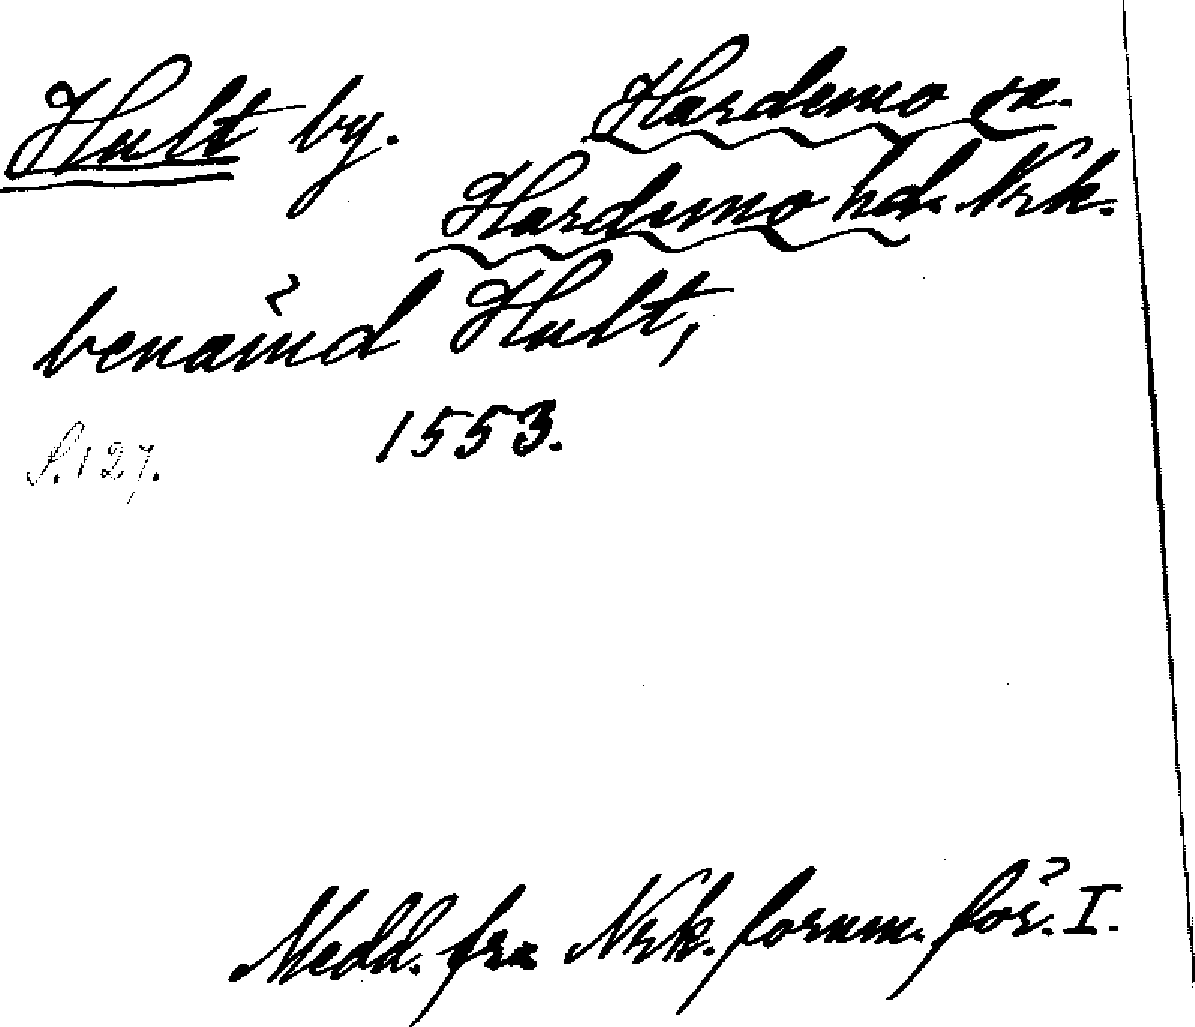 Hult by. Hardemo sn.
Hardemo hd. Nrk.
benämd Hult,
1553.
S. 127.
Medd. fra Nrk. fornm. för. I.